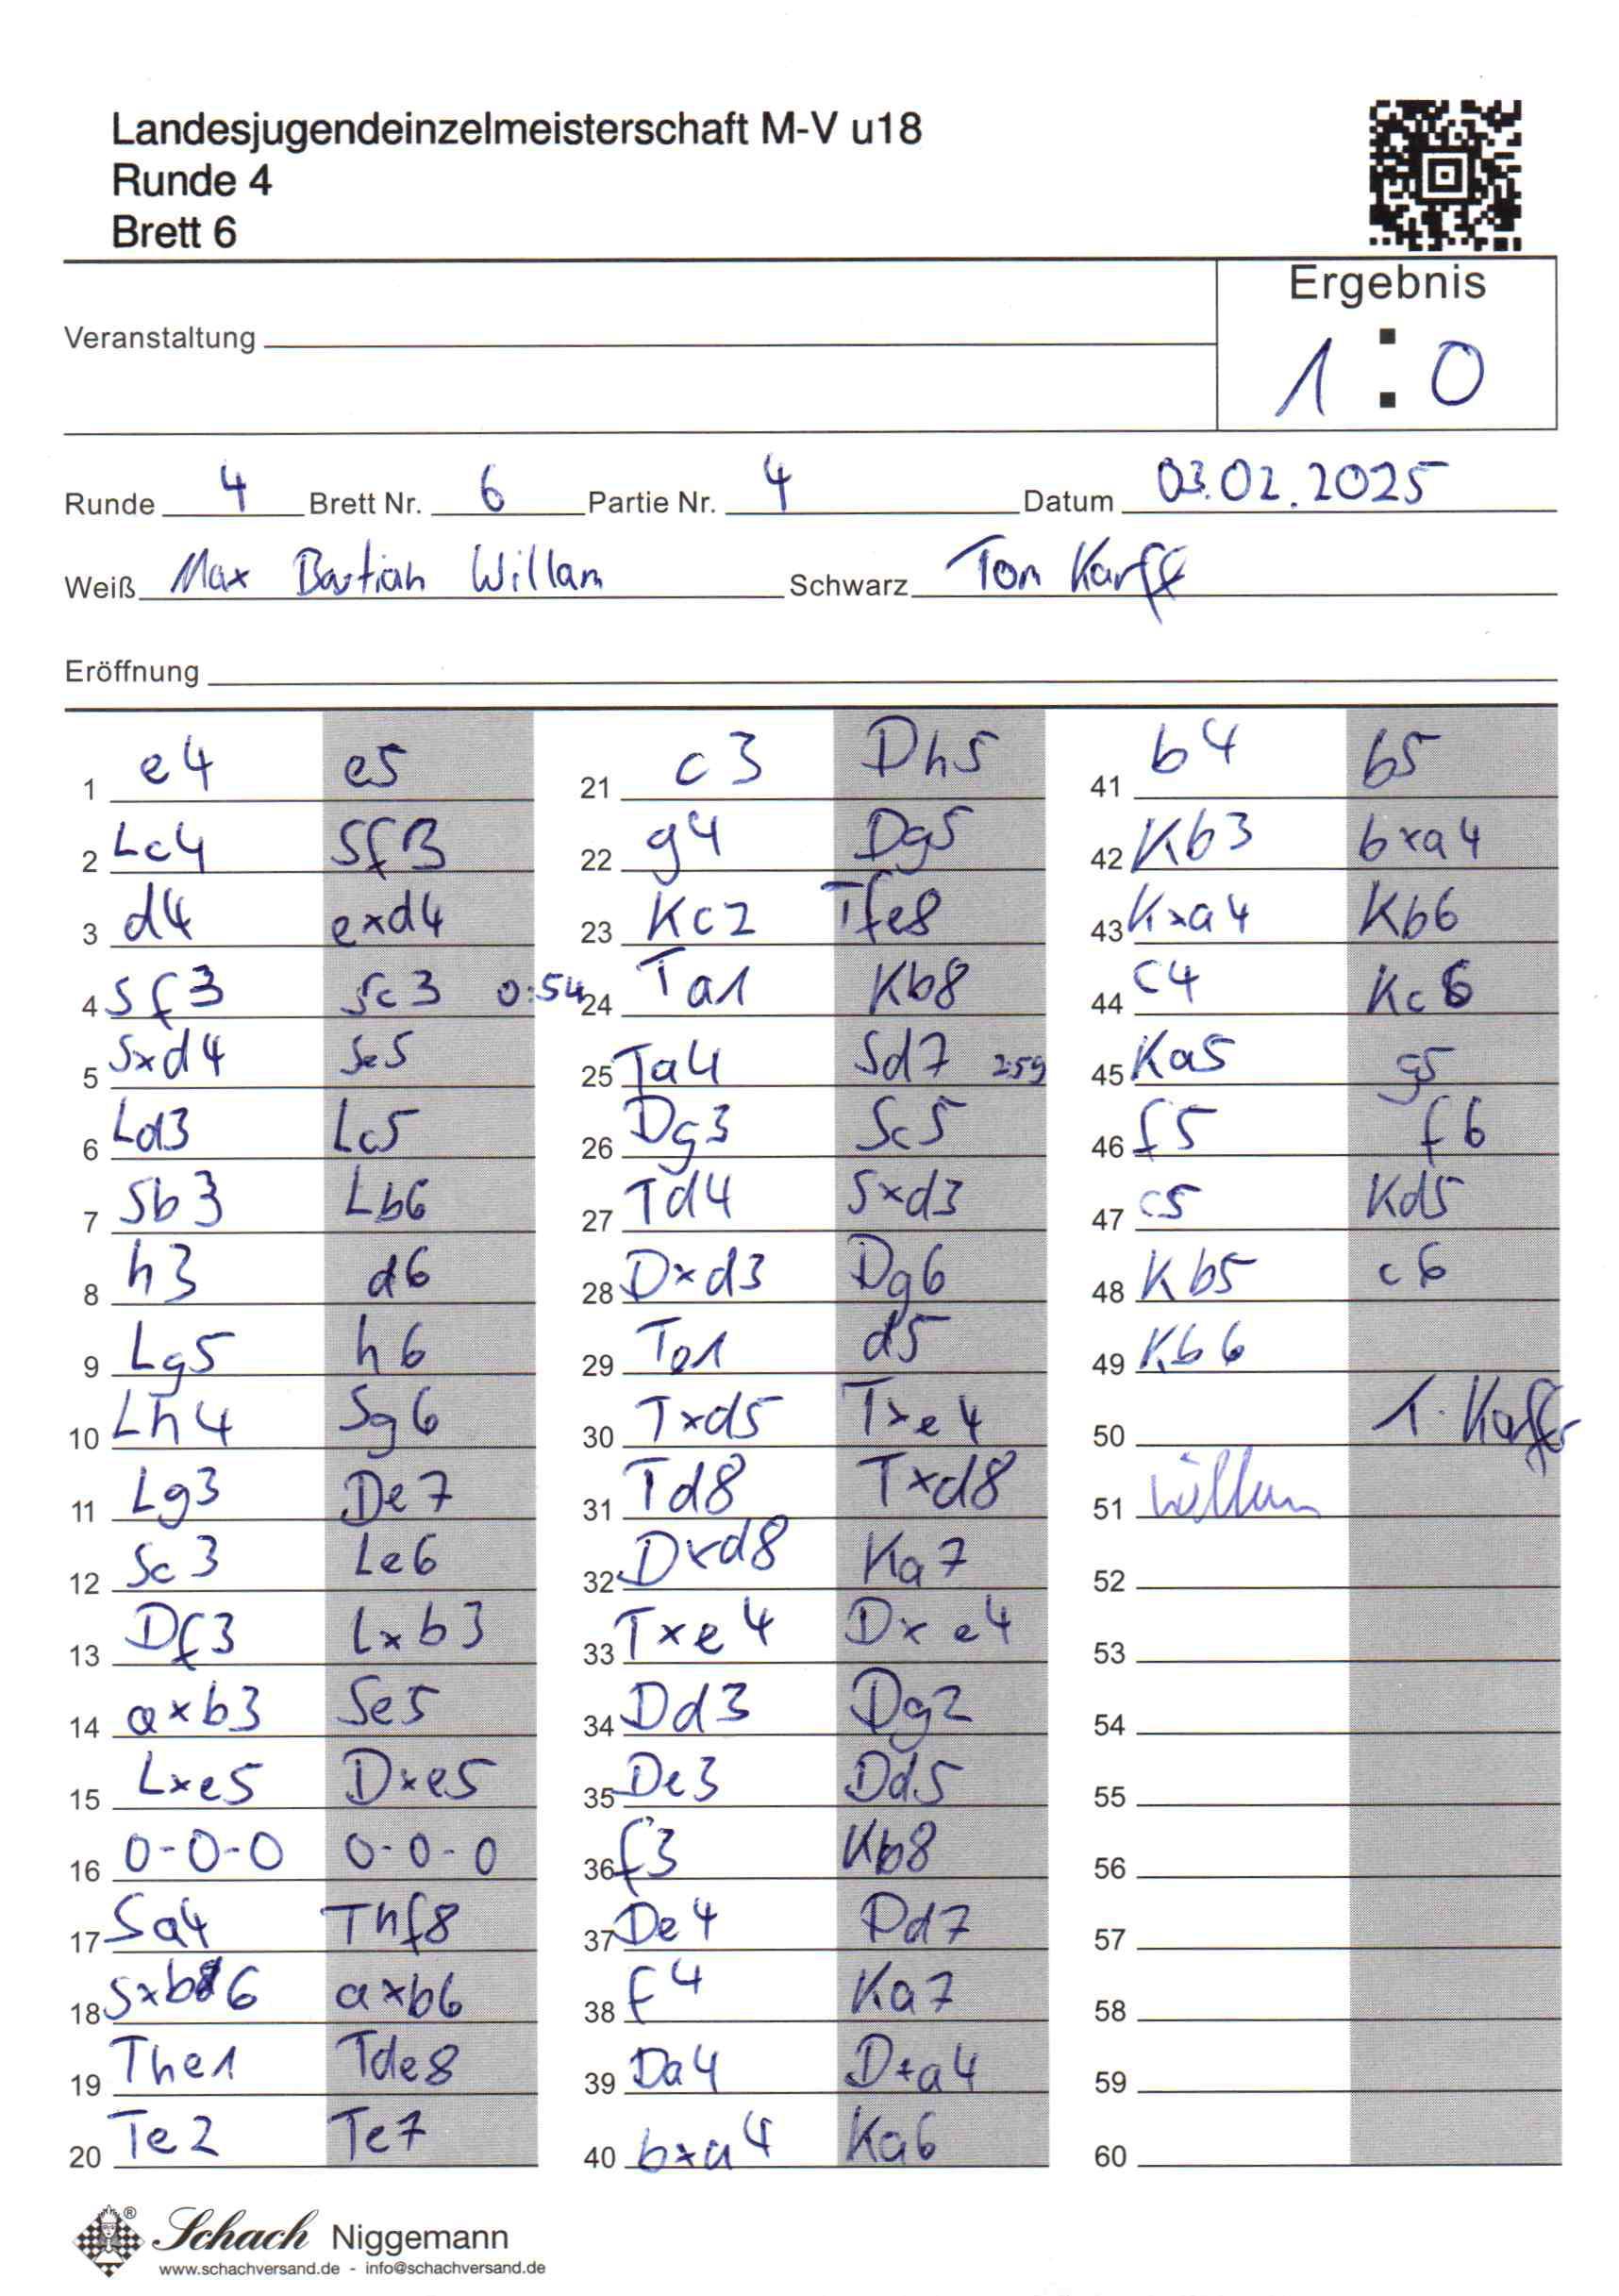 Landesjugendeinzelmeisterschaft M-V u18
Runde 4
Brett 6
Ergebnis
1 : 0
Veranstaltung
Runde 4 Brett Nr. 6 Partie Nr. 4 Datum 03.02.2025
Weiß Max Bastian Willam Schwarz Tom Karff
Eröffnung
1 e4 e5
2 Lc4 Sf3
3 d4 exd4
4 Sf3 Sc3 0:54
5 Sxd4 Se5
6 Ld3 Lc5
7 Sb3 Lb6
8 h3 d6
9 Lg5 h6
10 Lh4 Sg6
11 Lg3 De7
12 Sc3 Le6
13 Df3 Lxb3
14 axb3 Se5
15 Lxe5 Dxe5
16 0-0-0 0-0-0
17 Sa4 Thf8
18 Sxb6 axb6
19 The1 Tde8
20 Te2 Te7
21 c3 Dh5
22 g4 Dg5
23 Kc2 Tfe8
24 Ta1 Kb8
25 Ta4 Sd7 2:59
26 Dg3 Sc5
27 Td4 Sxd3
28 Dxd3 Dg6
29 Te1 d5
30 Txd5 Txe4
31 Td8 Txd8
32 Dxd8 Ka7
33 Txe4 Dxe4
34 Dd3 Dg2
35 De3 Dd5
36 f3 Kb8
37 De4 Dd7
38 f4 Ka7
39 Da4 D+a4
40 bxa4 Ka6
41 b4 b5
42 Kb3 bxa4
43 Kxa4 Kb6
44 c4 Kc6
45 Ka5 g5
46 f5 f6
47 c5 Kd5
48 Kb5 c6
49 Kb6
50 T. Karff
51 Willam
52
53
54
55
56
57
58
59
60
Schach Niggemann
www.schachversand.de - info@schachversand.de